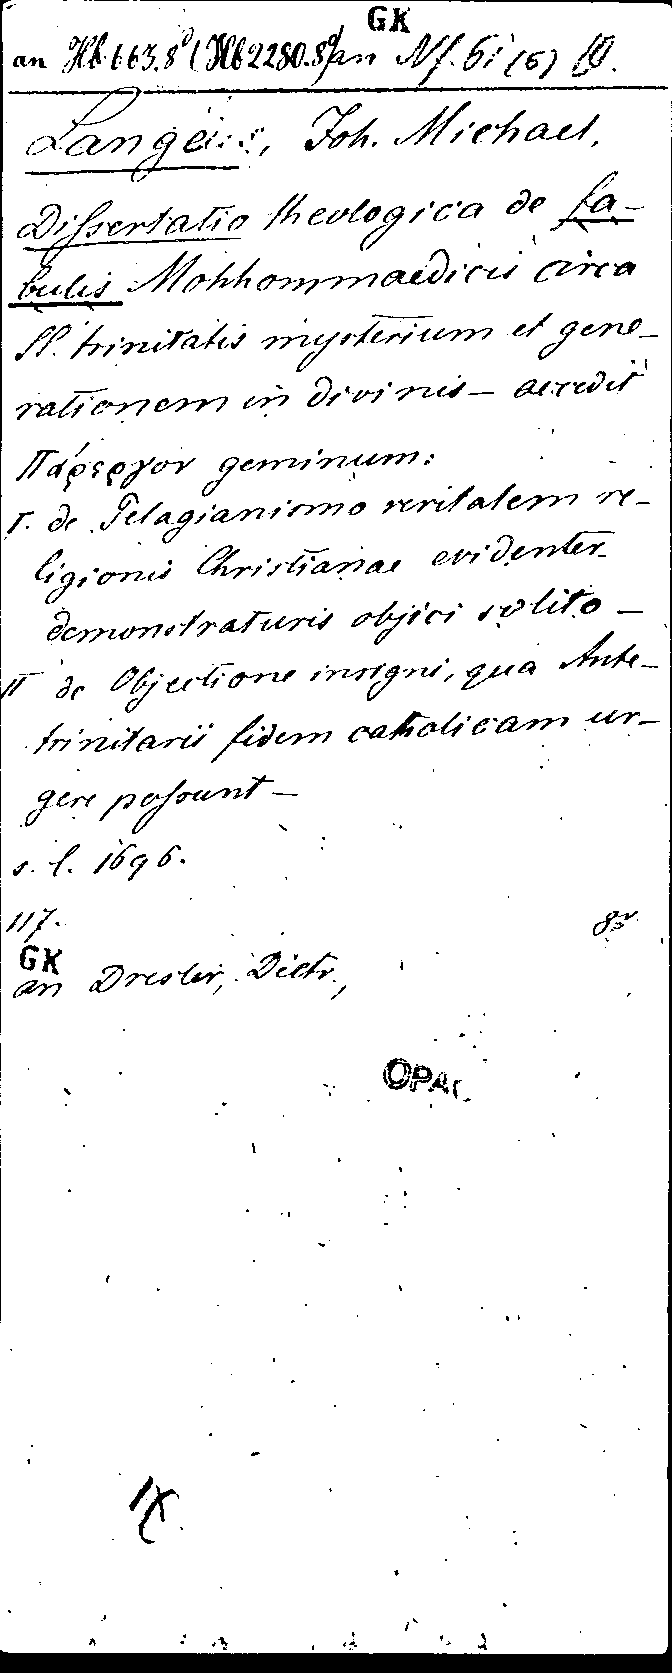 GK
an Hb 663.8° (Hb 2280.8°) an Nf. 61 (5)
Langëus, Joh. Michael.
Dissertatio theologica de fa-
bulis Mohhommaedicis circa
SS. trinitatis mysterium et gene-
rationem in divinis — accedit
Πάρεργον geminum:
I. de Pelagianismo veritatem re-
ligionis Christianae evidenter
demonstraturis objici solito —
II de Objectione insigni, qua Ante-
trinitarii fidem catholicam ur-
gere possunt —
s. l. 1696.
117. 8°
GK
an Dresler, Dietr.,
OPAC